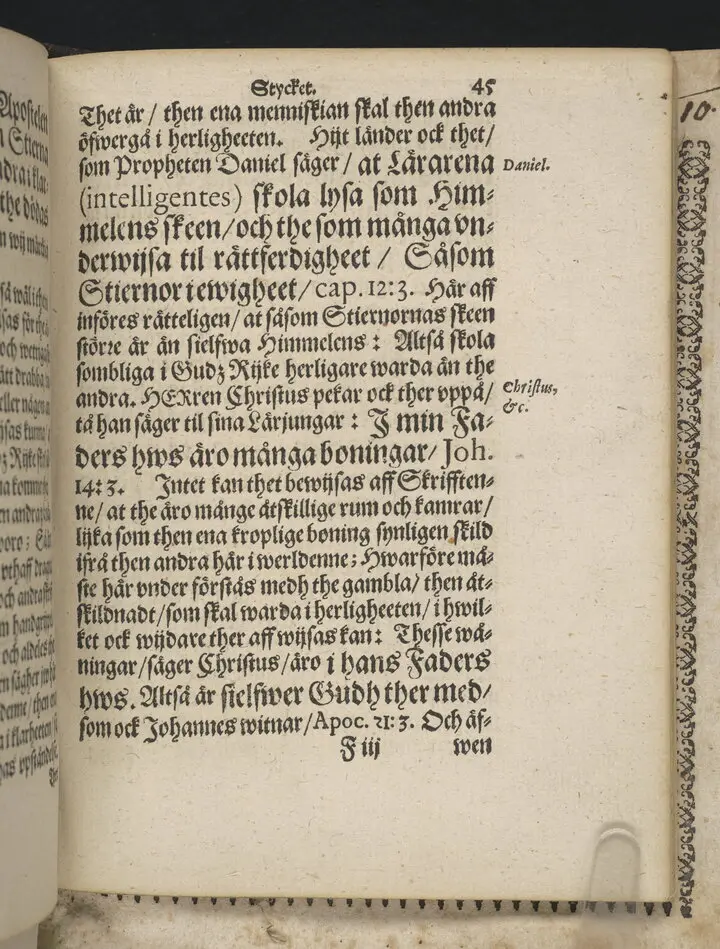 Stycket. 45
Thet är / then ena menniskian skal then andra
öfwergå i herligheeten. Hijt länder ock thet /
som Propheten Daniel säger / at Lärarena
Daniel.
(intelligentes) skola lysa som Him⸗
melens skeen / och the som många vn⸗
derwijsa til rättferdigheet / Såsom
Stiernor i ewigheet / cap. 12: 3. Här aff
införes rätteligen / at såsom Stiernornas skeen
större är än sielfwa Himmelens: Altså skola
sombliga i Gudz Rijke herligare warda än the
andra. HERren Christus pekar ock ther vppå /
Christus,
&c.
tå han säger til sina Lärjungar: J min Fa⸗
ders hws äro många boningar / Joh.
14: 3. Intet kan thet bewijsas aff Skrifften⸗
ne / at the äro månge åtskillige rum och kamrar /
lijka som then ena kroplige boning synligen skild
ifrå then andra här i werldenne; Hwarföre må⸗
ste här vnder förstås medh the gambla / then åt⸗
skildnadt / som skal warda i herligheeten / i hwil⸗
ket ock wijdare ther aff wijsas kan: Thesse wå⸗
ningar / säger Christus / äro i hans Faders
hws. Altså är sielfwer Gudh ther med /
som ock Johannes witnar / Apoc. 21: 3. Och äf⸗
F iij wen
10.